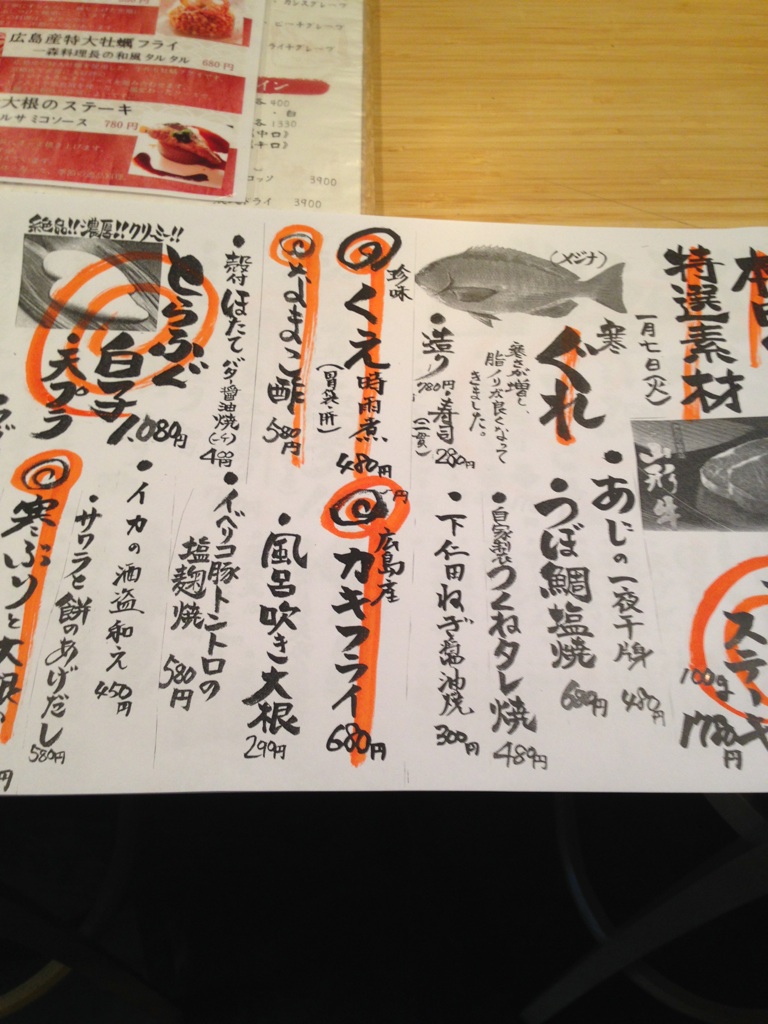 広島産特大牡蠣フライ
一森料理長の和風タルタル
680円
大根のステーキ
ルサミコソース 780円
各400
各1330
3900
3900
特選素材
一月七日(火)
山形牛
ステーキ
100g
1780円
(メジナ)
寒
ぐれ
寒さが増し、
脂ノリが良くなって
きました。
造り
780円・寿司
(二貫) 280円
・あじの一夜干し
480円
・うつぼ鯛塩焼
680円
・自家製つくねタレ焼
489円
・下仁田ねぎ醤油焼
300円
珍味
くえ時雨煮
(胃袋・肝)
480円
広島産
カキフライ
680円
なまこ酢
580円
・風呂吹き大根
299円
・殻付ほたて バター醤油焼
・イベリコ豚トントロの
塩麹焼
580円
絶品!!濃厚!!クリーミー!!
とらふぐ
白子
天プラ
1,080円
・イカの酒盗和え
450円
・サワラと餅のあげだし
580円
寒ぶりと大根